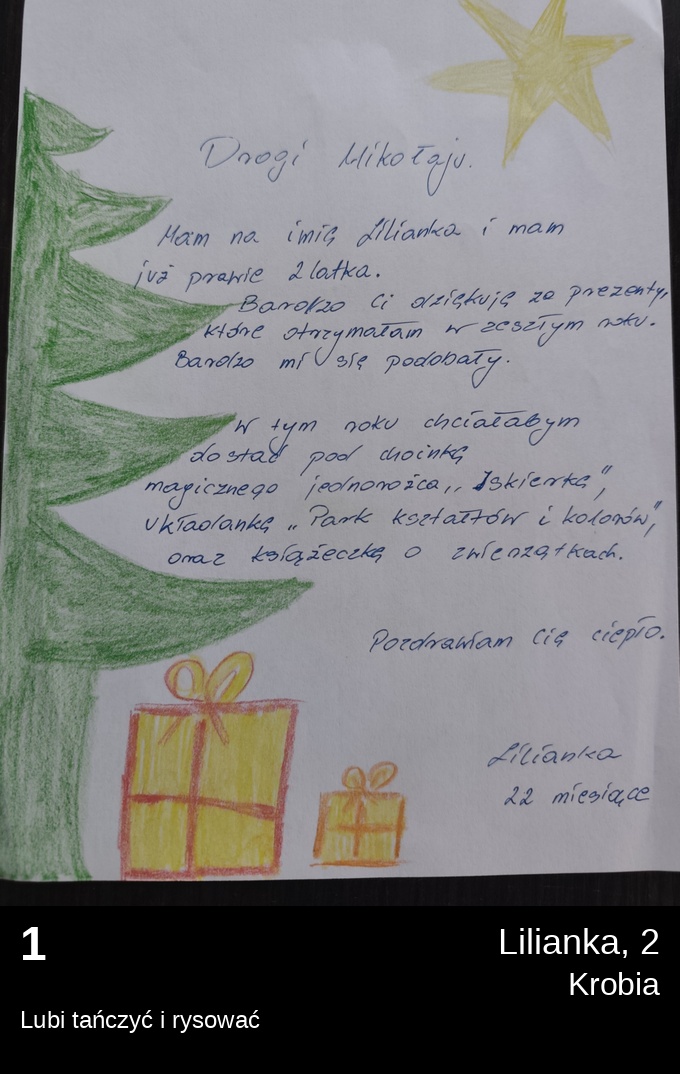 Drogi Mikołaju.
Mam na imię Lilianka i mam
już prawie 2 latka.
Bardzo Ci dziękuję za prezenty,
które otrzymałam w zeszłym roku.
Bardzo mi się podobały.
W tym roku chciałabym
dostać pod choinkę
magicznego jednorożca „Iskierkę",
układankę „Park kształtów i kolorów",
oraz książeczkę o zwierzątkach.
Pozdrawiam Cię ciepło.
Lilianka
22 miesiące
1
Lilianka, 2
Krobia
Lubi tańczyć i rysować